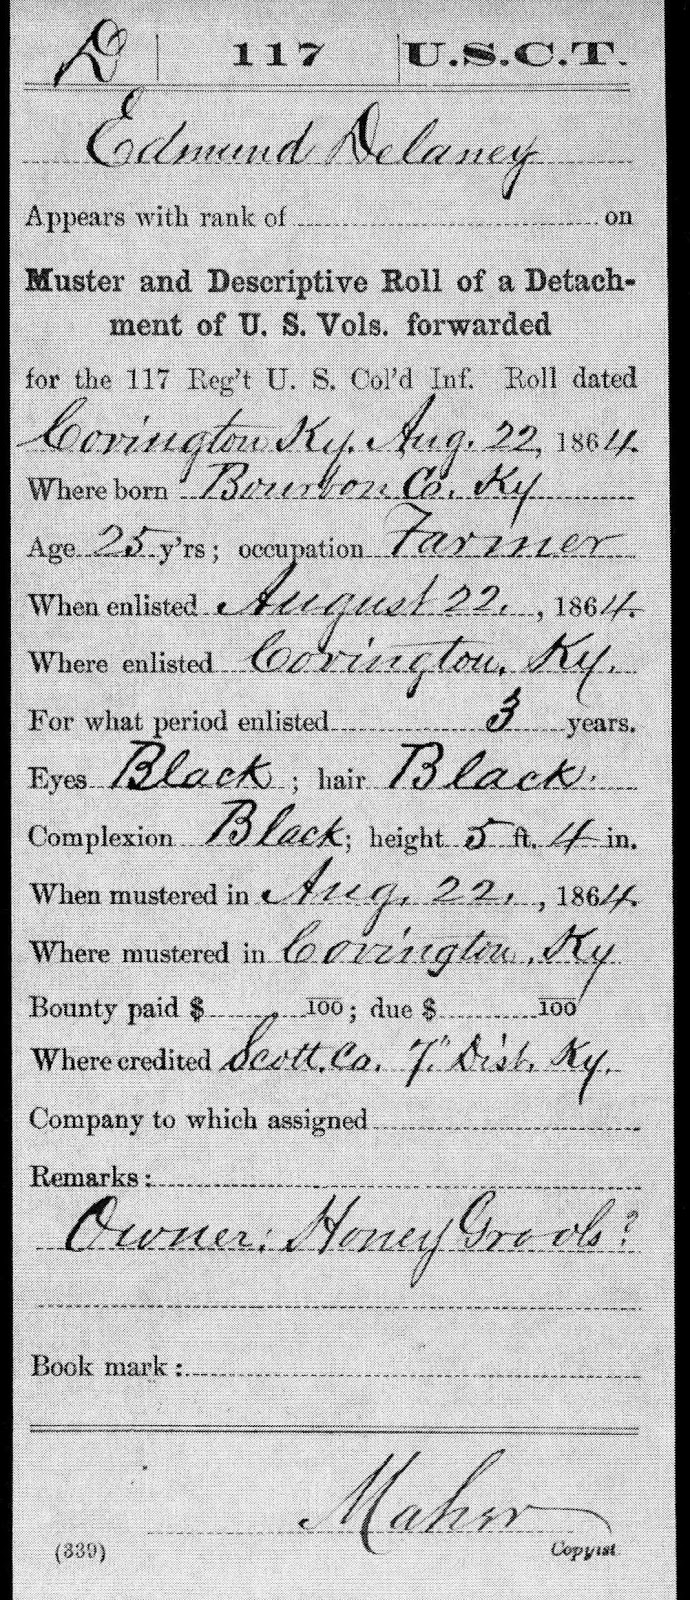 D | 117 | U.S.C.T.
Edmund Delaney
Appears with rank of on
Muster and Descriptive Roll of a Detach-
ment of U. S. Vols. forwarded
for the 117 Reg't U. S. Col'd Inf. Roll dated
Covington Ky. Aug. 22, 1864.
Where born Bourbon Co. Ky
Age 25 y'rs; occupation Farmer
When enlisted August 22. , 1864.
Where enlisted Covington, Ky.
For what period enlisted 3 years.
Eyes Black ; hair Black.
Complexion Black; height 5 ft. 4 in.
When mustered in Aug. 22. , 1864.
Where mustered in Covington, Ky
Bounty paid $ 100 ; due $ 100
Where credited Scott. Co. 7" Dist. Ky.
Company to which assigned
Remarks:
Owner: Honey Grools?
Book mark:
Maher
(339) Copyist